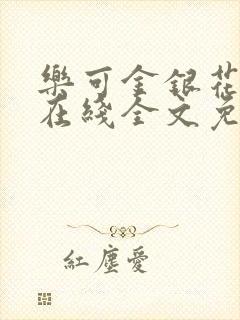 樂可金銀花
在綫全文免
紅塵愛